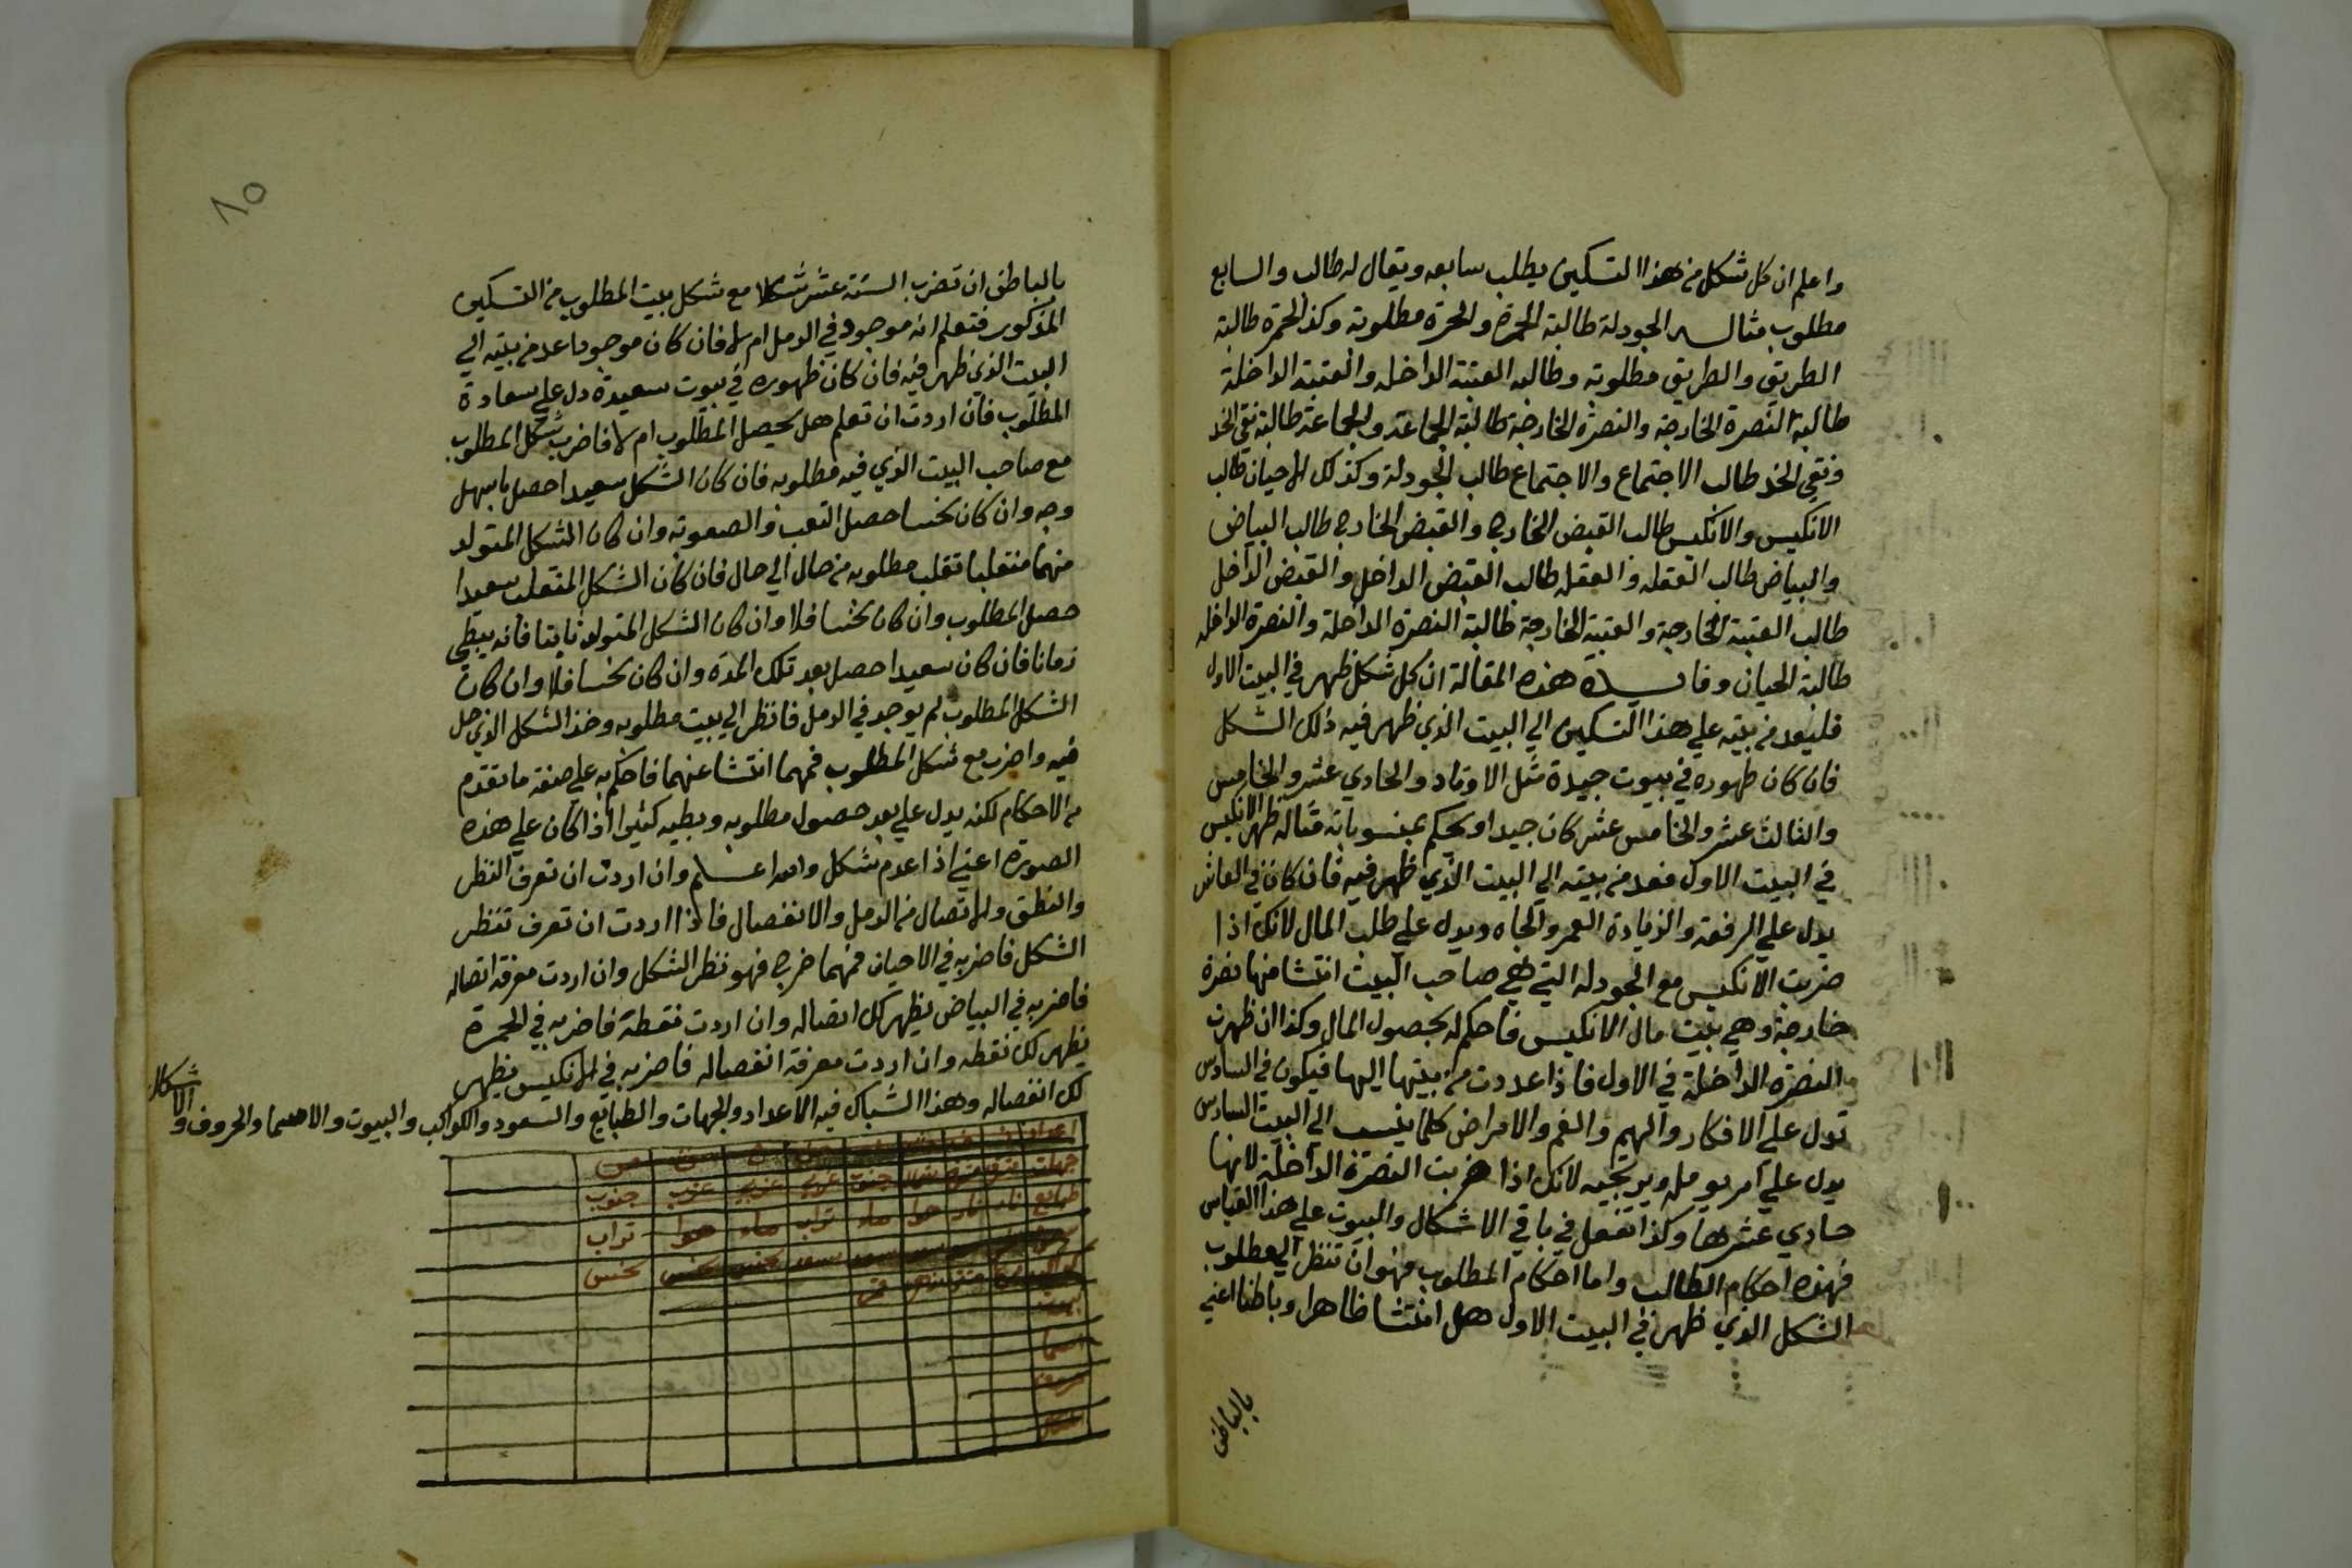 واعلم ان كل شكل من هذا التسكين يطلب سابعه ويقال له طالب والسابع
مطلوب مثاله الجودلة طالبة الحمرة والحمرة مطلوبة وكذا الحمرة طالبة
الطريق والطريق مطلوبة وطالبه العتبة الداخله والعتبة الداخلة
طالبة النصرة الخارجة والنصرة الخارجة طالبة الجماعة والجماعة طالبة نقي الخد
ونقي الخد طالب الاجتماع والاجتماع طالب الجودلة وكذلك الاحيان طالب
الانكيس والانكيس طالب القبض الخارج والقبض الخارج طالب البياض
والبياض طالب العقله والعقله طالب القبض الداخل والقبض الداخل
طالب العتبة الخارجة والعتبة الخارجة طالبة النصرة الداخلة والنصرة الداخله
طالبة الحيان وفايدة هذه المقالة ان كل شكل ظهر في البيت الاول
فليعد من بيته علي هذا التسكين الي البيت الذي ظهر فيه ذلك الشكل
فان كان ظهوره في بيوت جيدة مثل الاوتاد والحادي عشر والخامس
والثالث عشر والخامس عشر كان جيدا ويحكم بمنسوباته مثاله ظهر الانكيس
في البيت الاول فعد من بيته الي البيت الذي ظهر فيه فان كان في العاشر
يدل علي الرفعة والزيادة العمر والجاه ويدل علي طلب المال لانك اذا
ضربت الانكيس مع الجودله التي هي صاحب البيت انتشا منها نصرة
خارجة وهي بيت مال الانكيس فاحكم له بحصول المال وكذا ان ظهرت
النصره الداخلة في الاول فاذا عددت من بيتها اليها فيكون في السادس
تدل علي الافكار والهم والغم والامراض كلما ينسب الي البيت السادس
يدل علي امر يومله ويرتجيه لانك اذا ضربت النصرة الداخلة لانها
حادي عشرها وكذا تفعل في باقي الاشكال والبيوت علي هذا القياس
فهذه احكام الطالب واما احكام المطلوب فهو ان تنظر الي مطلوب
الشكل الذي ظهر في البيت الاول هل انتشا ظاهرا وباطنا اعني
بالباطن
١٥
بالباطن ان تضرب الستة عشر شكلا مع شكل بيت المطلوب من التسكين
المذكور فتعلم انه موجود في الرمل ام لا فان كان موجودا عد من بيته الي
البيت الذي ظهر فيه فان كان ظهوره في بيوت سعيدة دل علي سعادة
المطلوب فان اردت ان تعلم هل يحصل المطلوب ام لا فاضرب شكل المطلوب
مع صاحب البيت الذي فيه مطلوبه فان كان الشكل سعيدا حصل باسهل
وجه وان كان نحسا حصل التعب والصعوبة وان كان الشكل المتولد
منهما منقلبا تقلب مطلوبه من حال الي حال فان كان الشكل المنقلب سعيدا
حصل المطلوب وان كان نحسا فلا وان كان الشكل المتولد ثابتا فانه يبطي
زمانا فان كان سعيدا حصل بعد تلك المدة وان كان نحسا فلا وان كان
الشكل المطلوب لم يوجد في الرمل فانظر الي بيت مطلوبه وخذ الشكل الذي حل
فيه واضرب مع شكل المطلوب فمهما انتشا عنهما فاحكم به علي صفة ما تقدم
من الاحكام لكنه يدل علي بعد حصول مطلوبه ويطيه كثيرا اذا كان علي هذه
الصورة اعني اذا عدم شكل والله اعلم وان اردت ان تعرف النظر
والنطق والاتصال من الرمل والانفصال فاذا اردت ان تعرف تنظر
الشكل فاضربه في الاحيان فمهما خرج فهو نظر الشكل وان اردت معرفة اتصاله
فاضربه في البياض يظهر لك اتصاله وان اردت نقطة فاضربه في الحمرة
يظهر لك نقطه وان اردت معرفة انفصاله فاضربه في الانكيس يظهر
لك انفصاله وهذا الشباك فيه الاعداد والجهات والطبايع والسعود والكواكب والبيوت والاسما والحروف والاشكال
اعداد
جهات شرق شرق شمال جنوب غرب غرب غرب جنوب
طبايع نار نار هوا ماء تراب ماء هوا تراب
سعد سعد سعد نحس نحس نحس
بيوت
اسما
حروف
اشكال